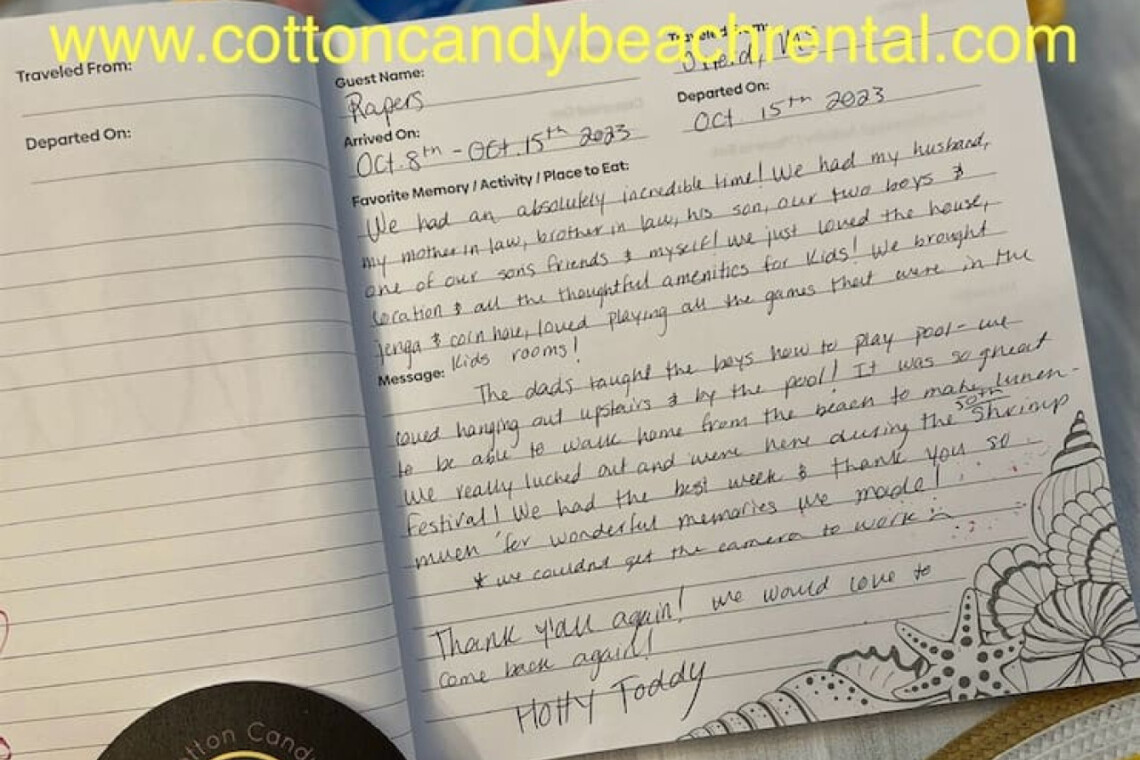 www.cottoncandybeachrental.com
Traveled From:
Departed On:
Guest Name:
Rapers
Traveled From:
Arrived On:
Oct. 8th - Oct. 15th 2023
Departed On:
Oct. 15th 2023
Favorite Memory / Activity / Place to Eat:
We had an absolutely incredible time! We had my husband,
my mother in law, brother in law, his son, our two boys &
one of our sons friends & myself! We just loved the house,
location & all the thoughtful amenities for kids! We brought
Jenga & corn hole, loved playing all the games that were in the
kids rooms!
Message:
The dads taught the boys how to play pool - we
loved hanging out upstairs & by the pool! It was so great
to be able to walk home from the beach to make lunch -
we really lucked out and were here during the 50th Shrimp
Festival! We had the best week & thank you so
much for wonderful memories we made!
* we couldnt get the camera to work :(
Thank y'all again! We would love to
come back again!!
Holly Toddy
Cotton Cand